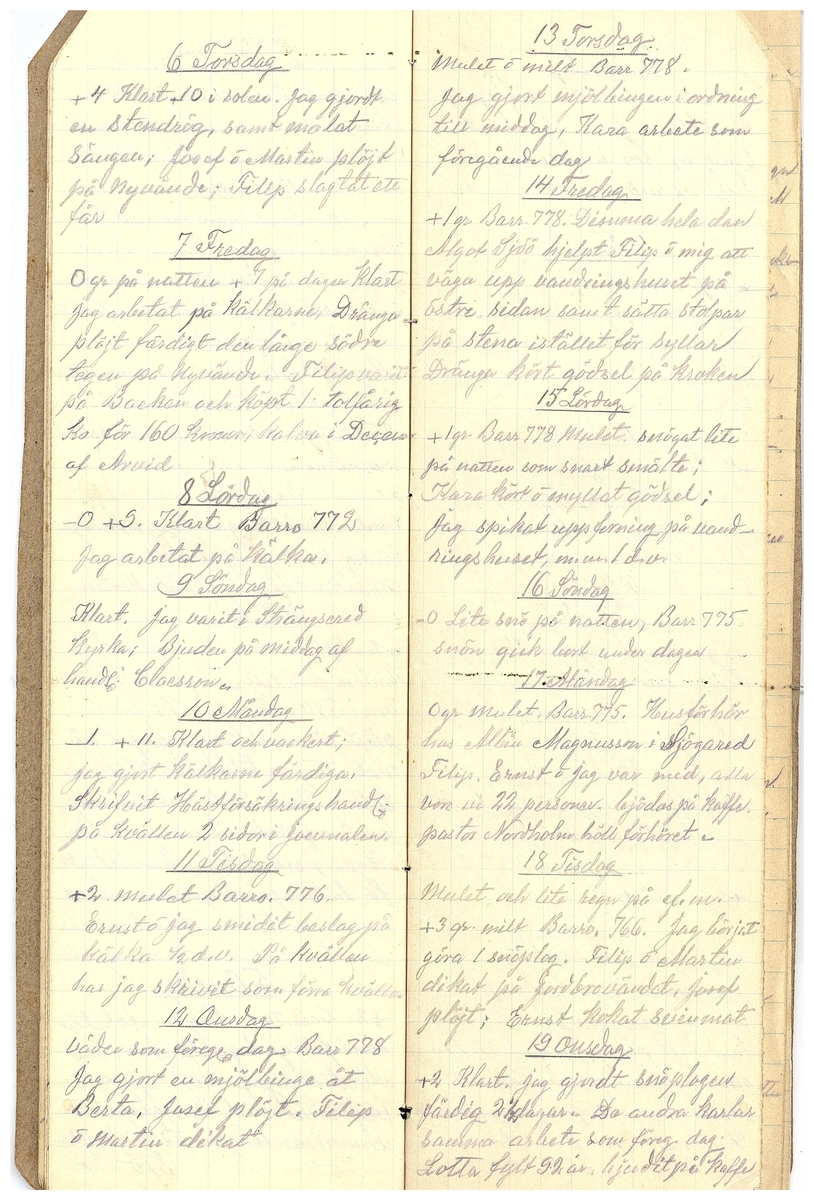 6 Torsdag
+4 Klart +10 i solen. Jag gjordt
en stendrög, samt målat
sängen; Josef ö Martin plöjt
på Nyvände; Filip slagtat ett
får
7 Fredag
0 gr på natten + 7 på dagen Klart
Jag arbetat på Kälkarne, Drängn
plöjt färdigt den långe södre
tegen på Nyvände. Filip varit
på Backen och köpt 1. tolfårig
ko för 160 kronor; kalva i Decem
af Arvid
8 Lördag
-0 +9. Klart Barro 772
Jag arbetat på kälka.
9 Söndag
Klart. Jag varit i Strängsered
kyrka; Bjuden på middag af
handl. Claesson
10 Måndag
-1. +11. Klart och vackert;
jag gjort kälkarne färdiga.
Skrifvit Hästförsäkringshandl
på kvällen 2 sidor i journalen.
11 Tisdag
+2 mulet Barro. 776.
Ernst ö jag smidit beslag på
kälka ½ d.v. På kvällen
har jag skrivit som förra kvälln.
12 Onsdag
Väder som föreg. dag Barr 778
Jag gjort en mjölbinge åt
Berta, Josef plöjt. Filip
ö Martin dikat
13 Torsdag
Mulet ö milt Barr 778.
Jag gjort mjölbingen i ordning
till middag, Kara arbete som
föregående dag
14 Fredag
+1 gr Barr. 778. Dimma hela dan
Algot Sjöö hjelpt Filip ö mig att
väga upp vandringshuset på
östre sidan samt sätta stolpar
på stena istället för syllar
Drängn kört gödsel på kroken
15 Lördag
+1 gr Barr 778 Mulet snögat lite
på natten som snart smälte;
Kara kört ö myllat gödsel;
Jag spikat uppforning på vand-
ringshuset, m.m. 1 d.v.
16 Söndag
-0 Lite snö på natten, Barr 775
snön gick bort under dagen
17 Måndag
0 gr mulet. Barr 775. Husförhör
hus Albin Magnusson i Sjögared
Filip. Ernst ö jag var med, alla
voro vi 22 personer. bjödos på kaffe.
pastor Nordholm höll förhöret.
18 Tisdag
Mulet och lite regn på ef.m.
+3 gr. milt Barro. 766. Jag börjat
göra 1 snöplog. Filip ö Martin
dikat på Jordbrovändet, Josef
plöjt; Ernst kokat svinmat
19 Onsdag
+2 Klart. jag gjordt snöplogen
färdig 2½ dagar. De andra karlar
samma arbete som föreg dag.
Lotta fylt 92 år. bjudit på kaffe